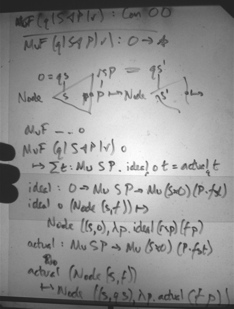 MuF (q|S◁P|r) : Con O O
MuF (q|S◁P|r) : O → *
O = qs
Node
s
p
P ↦ Node
qs'
s'
MuF (q|S◁P|r) o
↦ Σt: Mu S P. ideal o t = actual t
ideal : O → Mu S P → Mu (S×O) (P·fst)
ideal o (Node (s,f)) ↦
Node ((s,o), λp. ideal (rsp) (f p)
actual : Mu S P → Mu (S×O) (P·fst)
actual (Node (s,f))
↦ Node ((s,qs), λp. actual (f p))